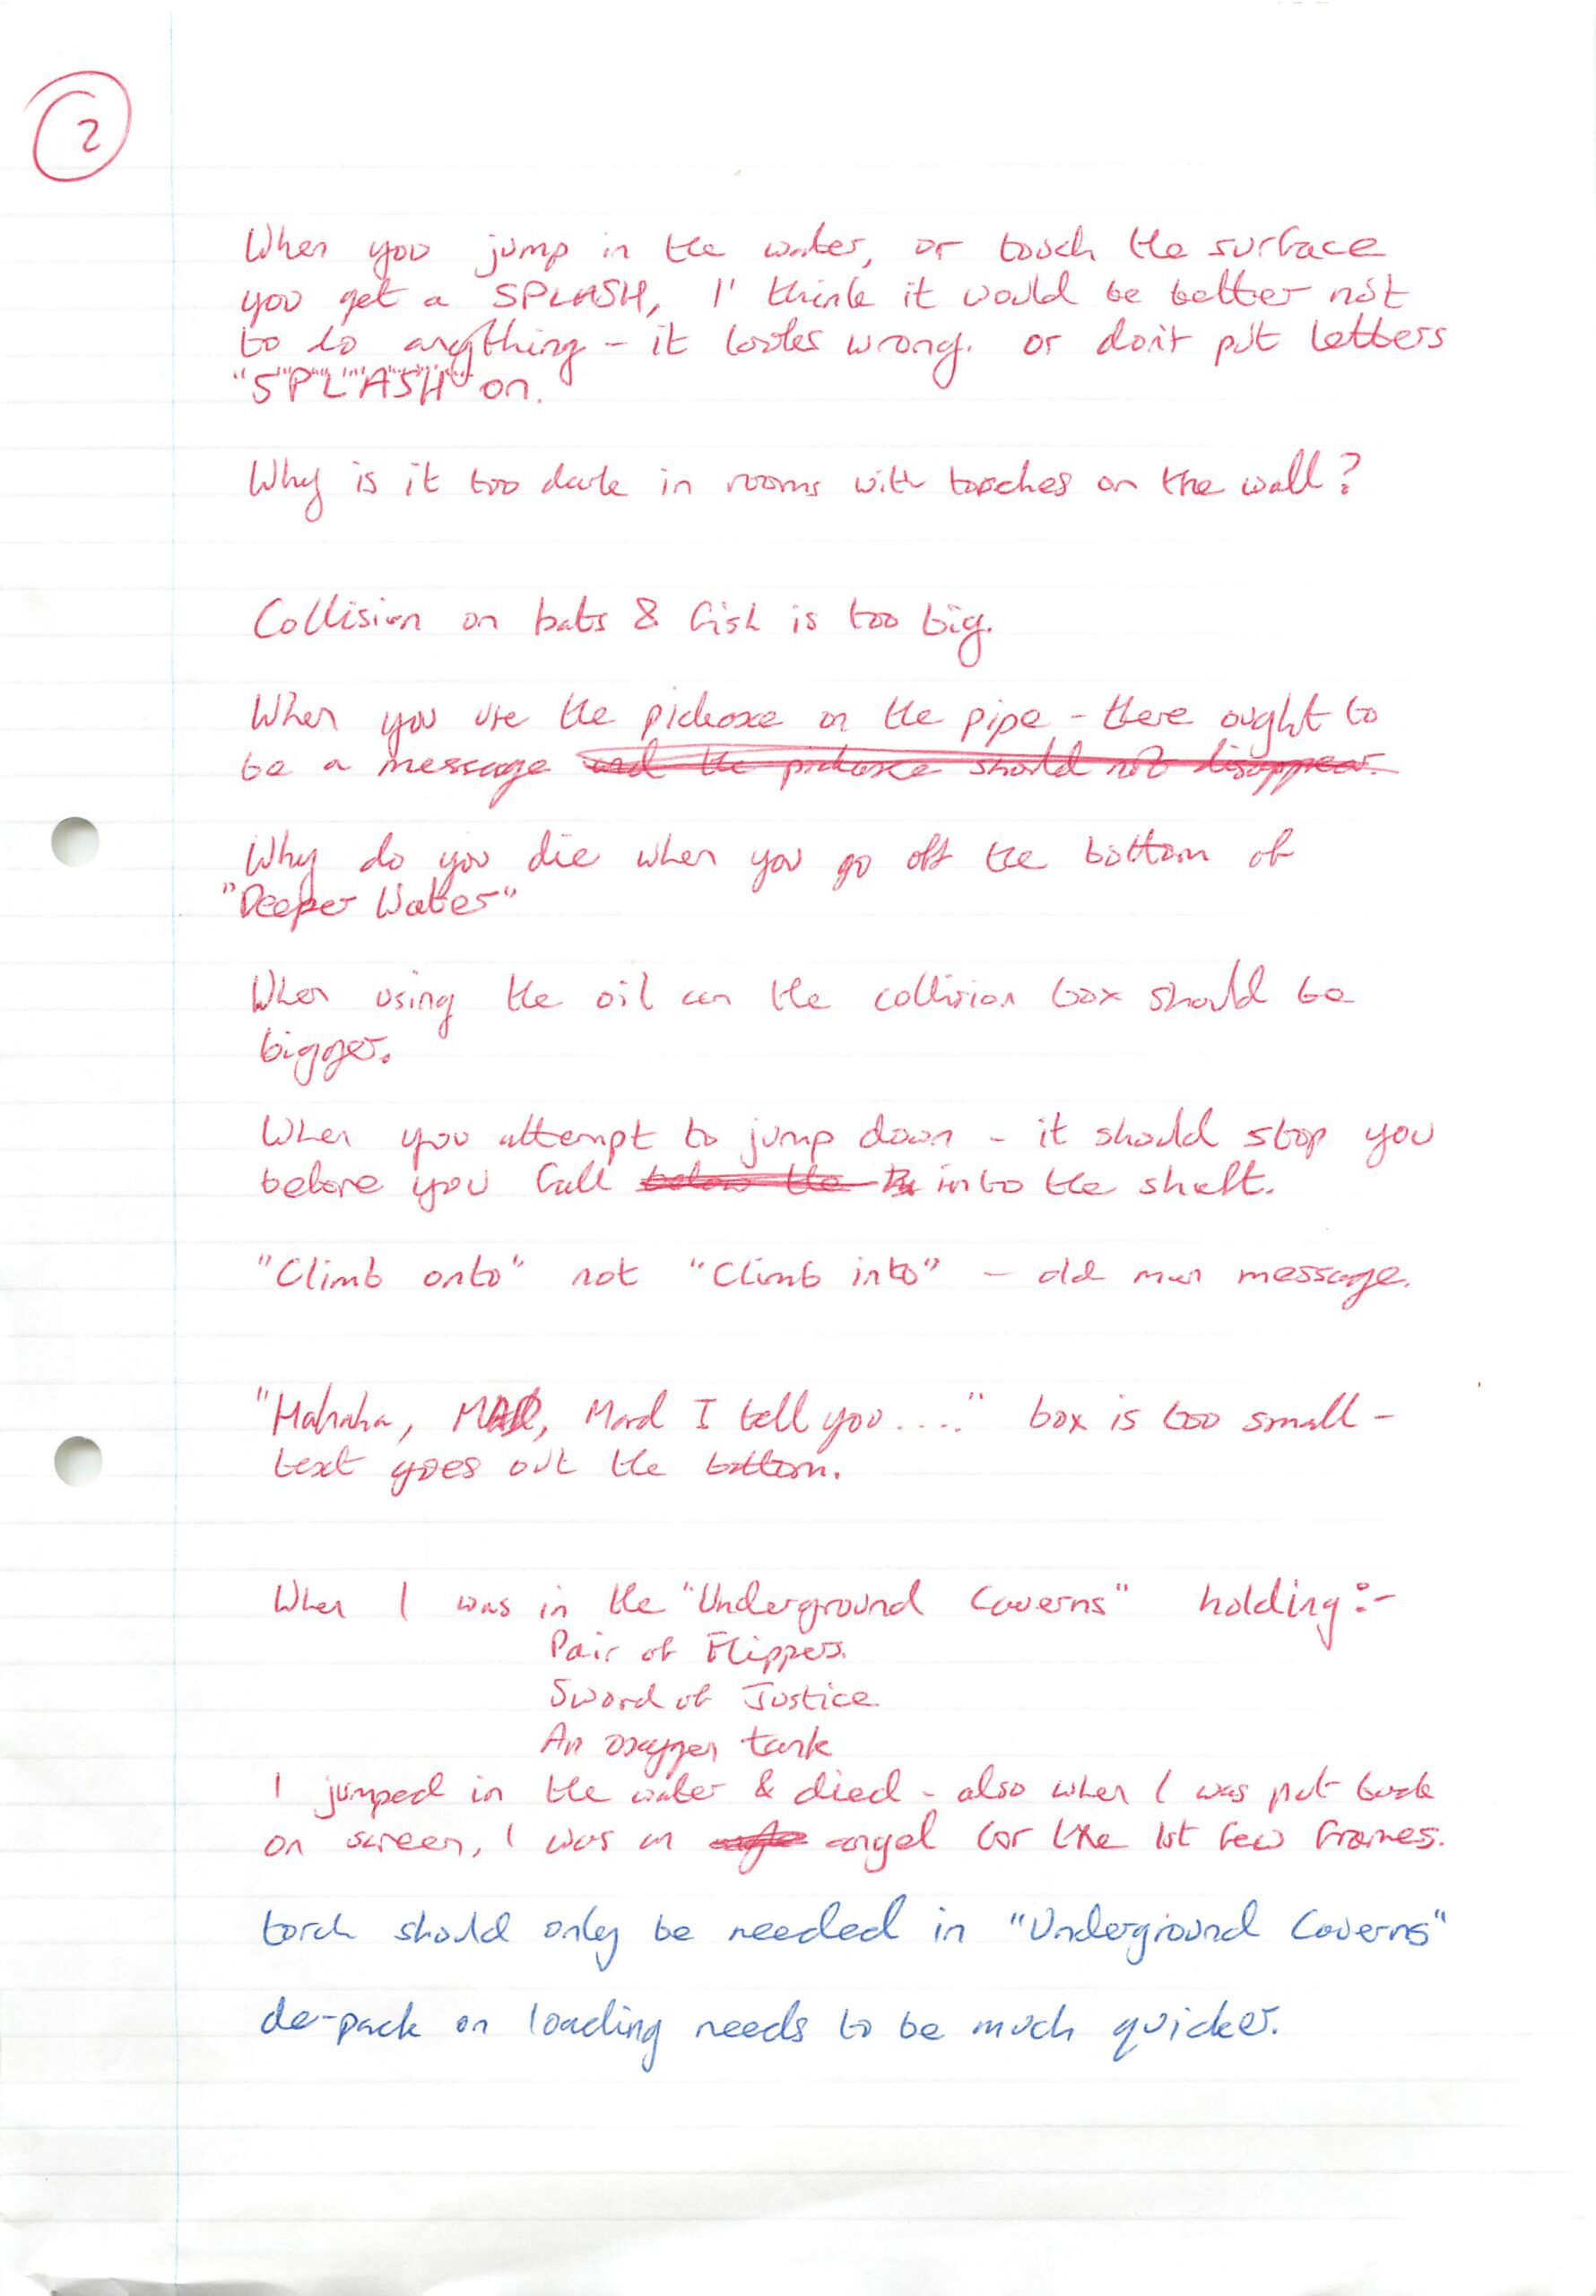 2
When you jump in the water, or touch the surface
you get a SPLASH, I think it would be better not
to do anything - it looks wrong. or don't put letters
"SPLASH" on.
Why is it too dark in rooms with torches on the wall?
Collision on bats & fish is too big.
When you use the pickaxe on the pipe - there ought to
be a message and the pickaxe should not disappear.
Why do you die when you go off the bottom of
"Deeper Water"
When using the oil can the collision box should be
bigger.
When you attempt to jump down - it should stop you
before you fall below the into the shaft.
"Climb onto" not "Climb into" - old man message.
"Hahaha, MAD, Mad I tell you...." box is too small -
text goes out the bottom.
When I was in the "Underground Caverns" holding:-
Pair of Flippers.
Sword of Justice
An oxygen tank
I jumped in the water & died - also when I was put back
on screen, I was an angel for the 1st few frames.
torch should only be needed in "Underground Caverns"
de-pack on loading needs to be much quicker.